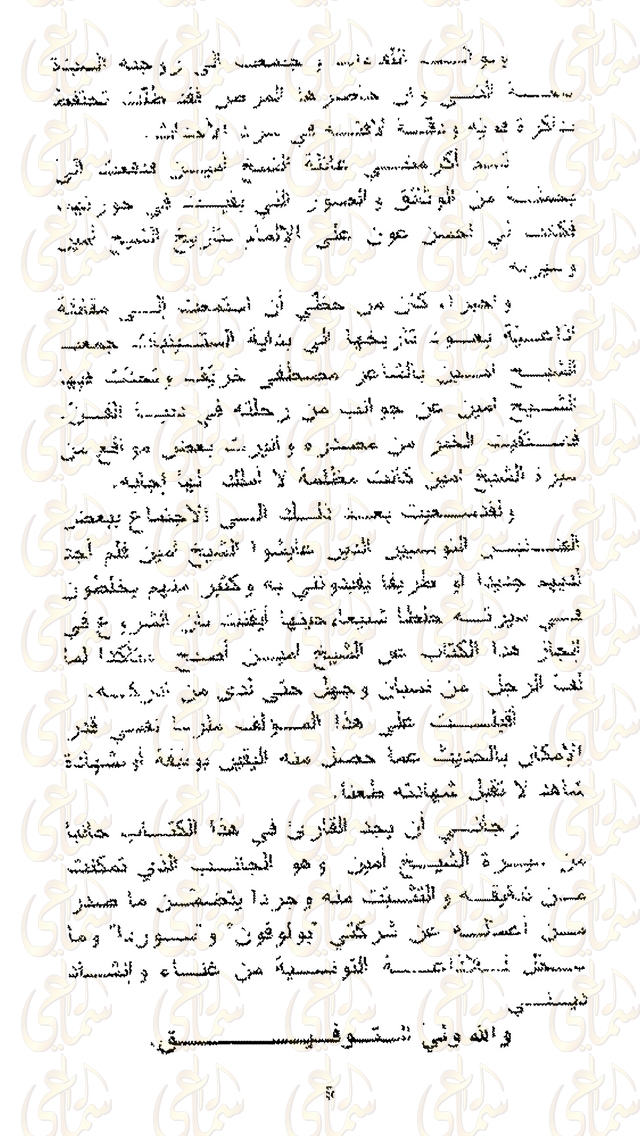 وبواسطة اللقاءات و جلست الى زوجته السيدة
التي وان المرض فقد ظلّت تحتفظ
بذاكرة قوية ونفسية في سرد الأحداث.
لقد أكرمتني عائلة الشيخ أمين فتفضلت الي
من الوثائق والصور التي بقيت في حوزتها،
فكانت لي احسن عون على الإلمام بتاريخ الشيخ أمين
وسيرته
واخيرا، كان من حظّي أن استمعت إلى مقابلة
اذاعية يعود تاريخها الى بداية الستينيات جمعت
الشيخ امين بالشاعر مصطفى خريّف وتحدّث فيها
الشيخ امين عن جوانب من رحلته في دنيا الفنّ،
فاستقيت الخبر من مصدره وانيرت بعض مواقع من
سيرة الشيخ امين كانت مظلمة لا أملك لها إجابة.
ولقد سعيت بعد ذلك الى الاجتماع ببعض
الفنانين التونسيين الذين عايشوا الشيخ امين فلم أجد
لديهم جديدا او طريفا يفيدونني به وكثير منهم يخلطون
في سيرته خلطا شنيعا، حينها أيقنت بأن الشروع في
انجاز هذا الكتاب عن الشيخ امين أصبح متأكدا لما
لفّ الرجل من نسيان وجهل حتى لدى من
أقبلت على هذا المؤلف ملزما نفسي قدر
الإمكان بالحديث عما حصل منه اليقين بوثيقة أو شهادة
شاهد لا تقبل شهادته طعنا.
رجائي أن يجد القارئ في هذا الكتاب جانبا
من سيرة الشيخ أمين وهو الجانب الذي تمكنت
من تدقيقه والتثبّت منه وجردا يتضمّن ما صدر
من أعماله عن شركتي "بولوفون" و وما
سجّل للإذاعة التونسية من غناء وإنشاد
ديني
والله ولي التوفيق.